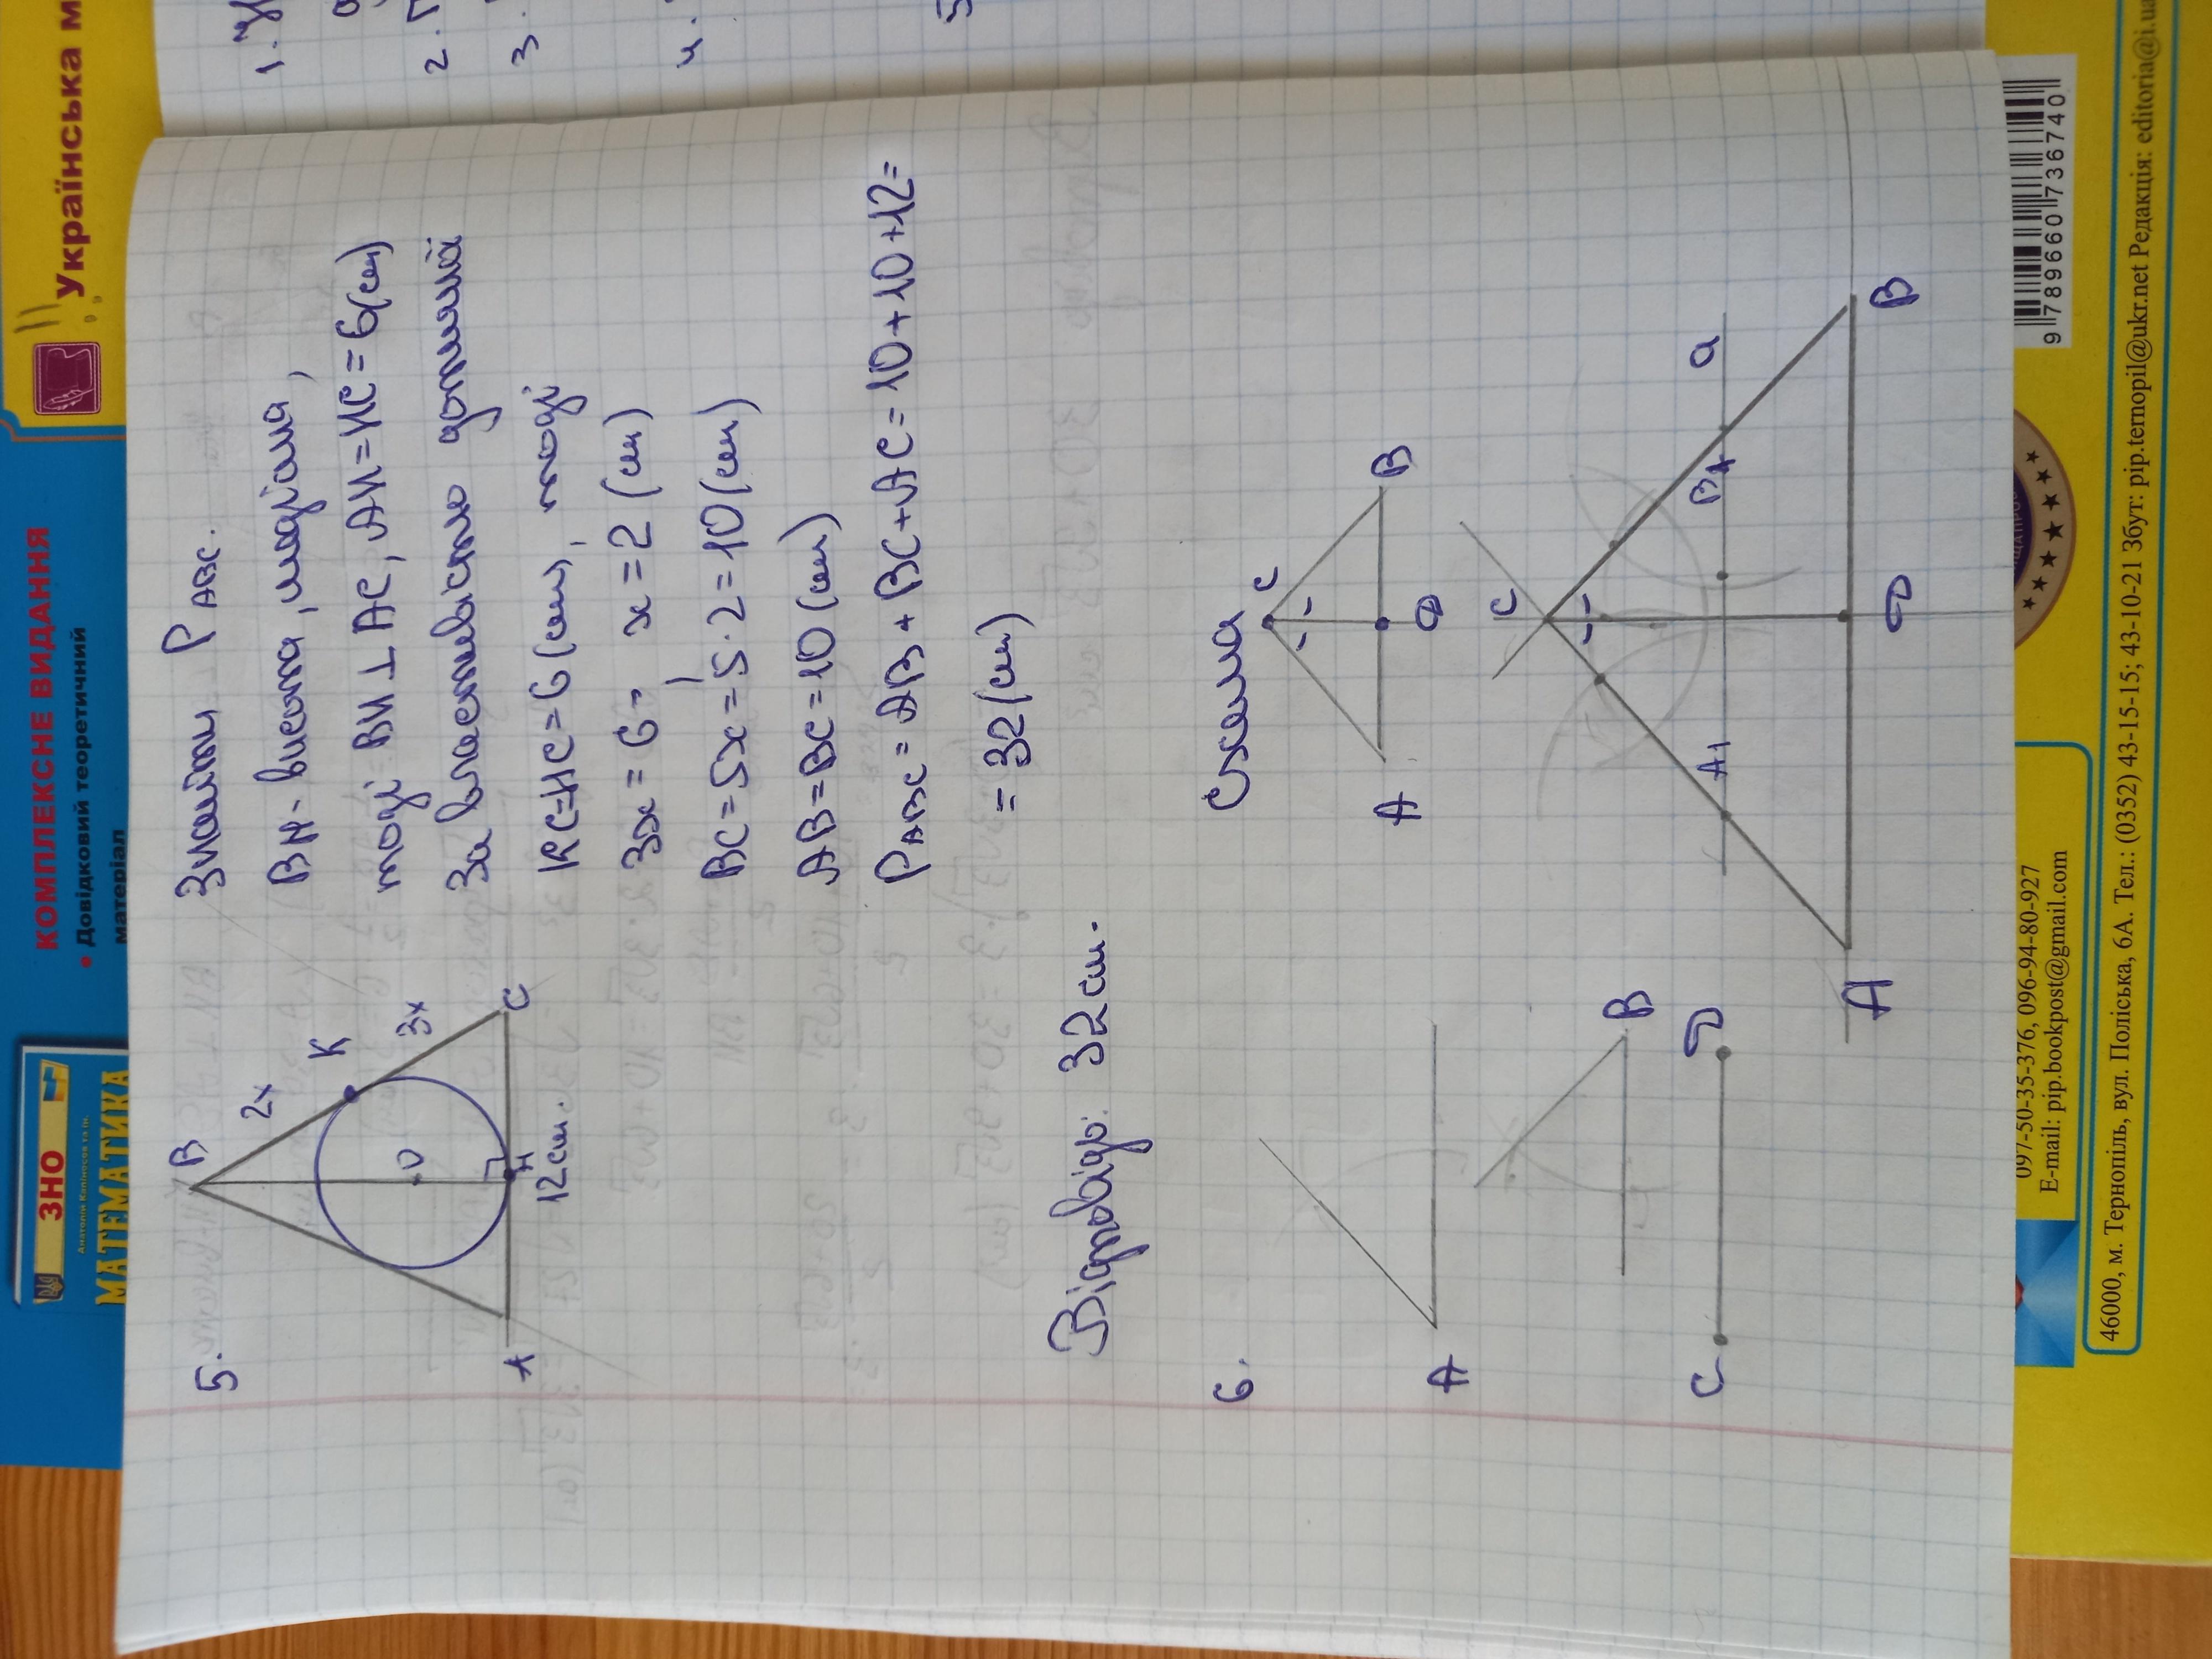 5.
B
2x
K
3x
O
A
H
C
12 см.
Знайти P ABC.
BH - висота, медіана,
тоді BH ⊥ AC, AH = HC = 6(см)
За властивістю дотичної
KC = HC = 6 (см), тоді
3x = 6, x = 2 (см)
BC = 5x = 5 · 2 = 10 (см)
AB = BC = 10 (см)
P ABC = AB + BC + AC = 10 + 10 + 12 =
= 32 (см)
Відповідь: 32 см.
6.
A
B
C
D
Схема
C
A
D
B
C
A1
B1
a
A
D
B
1.
2.
3.
ЗНО
Анатолій Капіносов та ін.
МАТЕМАТИКА
КОМПЛЕКСНЕ ВИДАННЯ
• Довідковий теоретичний
матеріал
Українська м
097-50-35-376, 096-94-80-927
E-mail: pip.bookpost@gmail.com
46000, м. Тернопіль, вул. Поліська, 6А. Тел.: (0352) 43-15-15; 43-10-21 Збут: pip.ternopil@ukr.net Редакція: editoria@i.ua
9 789660 736740